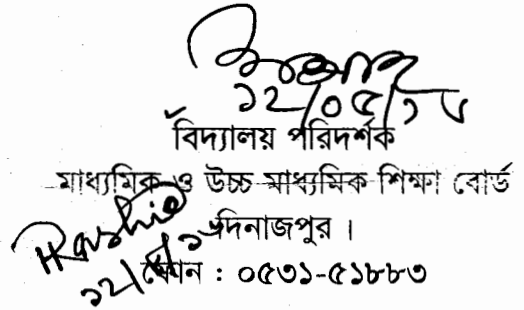 ১২/০৫/১৮
বিদ্যালয় পরিদর্শক
মাধ্যমিক ও উচ্চ মাধ্যমিক শিক্ষা বোর্ড
দিনাজপুর ।
ফোন : ০৫৩১-৫১৮৮৩